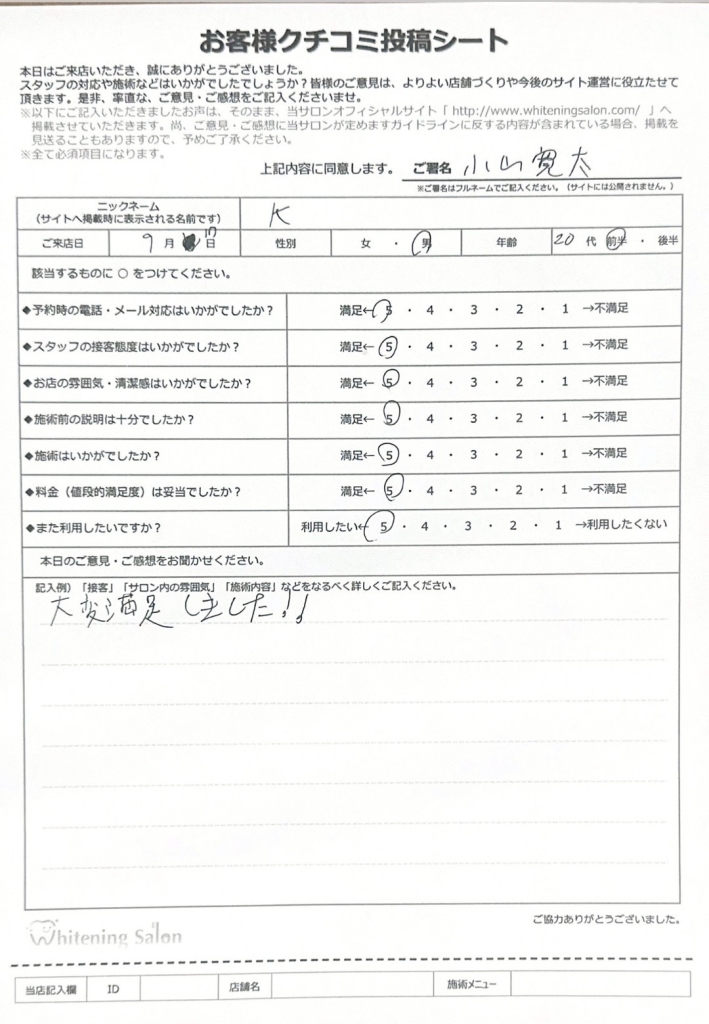 お客様クチコミ投稿シート
本日はご来店いただき、誠にありがとうございました。
スタッフの対応や施術などはいかがでしたでしょうか？皆様のご意見は、よりよい店舗づくりや今後のサイト運営に役立たせて
頂きます。是非、率直な、ご意見・ご感想をご記入くださいませ。
※以下にご記入いただきましたお声は、そのまま、当サロンオフィシャルサイト「 http://www.whiteningsalon.com/ 」へ
掲載させていただきます。尚、ご意見・ご感想に当サロンが定めますガイドラインに反する内容が含まれている場合、掲載を
見送ることもありますので、予めご了承ください。
※全て必須項目になります。
上記内容に同意します。 ご署名 小山寛太
※ご署名はフルネームでご記入ください。（サイトには公開されません。）
ニックネーム
（サイトへ掲載時に表示される名前です） K
ご来店日 9 月 17 日 性別 女 ・ 男 年齢 20 代 前半 ・ 後半
該当するものに ○ をつけてください。
◆予約時の電話・メール対応はいかがでしたか？ 満足← 5 ・ 4 ・ 3 ・ 2 ・ 1 →不満足
◆スタッフの接客態度はいかがでしたか？ 満足← 5 ・ 4 ・ 3 ・ 2 ・ 1 →不満足
◆お店の雰囲気・清潔感はいかがでしたか？ 満足← 5 ・ 4 ・ 3 ・ 2 ・ 1 →不満足
◆施術前の説明は十分でしたか？ 満足← 5 ・ 4 ・ 3 ・ 2 ・ 1 →不満足
◆施術はいかがでしたか？ 満足← 5 ・ 4 ・ 3 ・ 2 ・ 1 →不満足
◆料金（値段的満足度）は妥当でしたか？ 満足← 5 ・ 4 ・ 3 ・ 2 ・ 1 →不満足
◆また利用したいですか？ 利用したい← 5 ・ 4 ・ 3 ・ 2 ・ 1 →利用したくない
本日のご意見・ご感想をお聞かせください。
記入例）「接客」「サロン内の雰囲気」「施術内容」などをなるべく詳しくご記入ください。
大変満足しました!!
ご協力ありがとうございました。
Whitening Salon
当店記入欄 ID 店舗名 施術メニュー